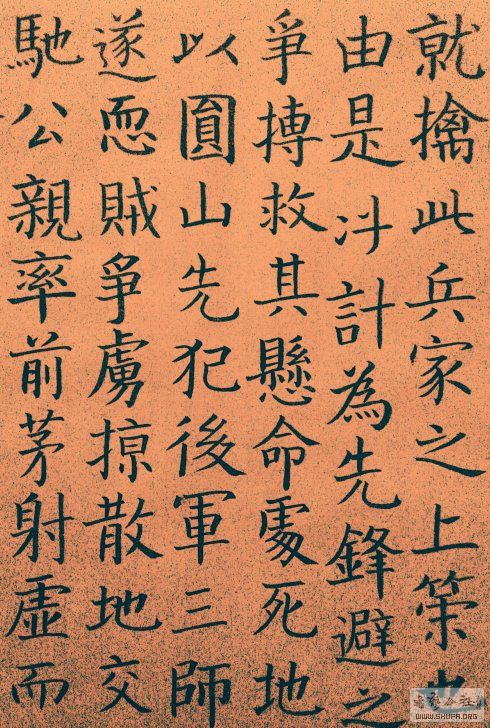 就擒此兵家之上策也
由是斗計為先鋒避之
爭摶救其懸命處死地
以圓山先犯後軍三師
遂恧賊爭虜掠散地交
馳公親率前茅射虛而
WWW.SHUFA.ORG